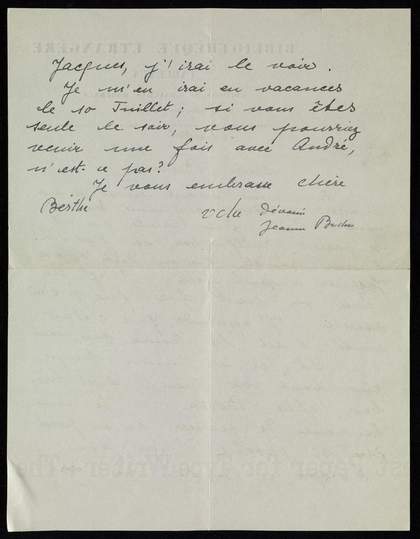 Jacques, j'irai le voir.
Je m'en irai en vacances
le 10 Juillet ; si vous êtes
seule le soir, vous pourriez
venir une fois avec André,
n'est-ce pas ?
Je vous embrasse chère
Berthe
Jeanne
BIBLIOTHÈQUE ÉTRANGÈRE
st Paper for TypeWriter The